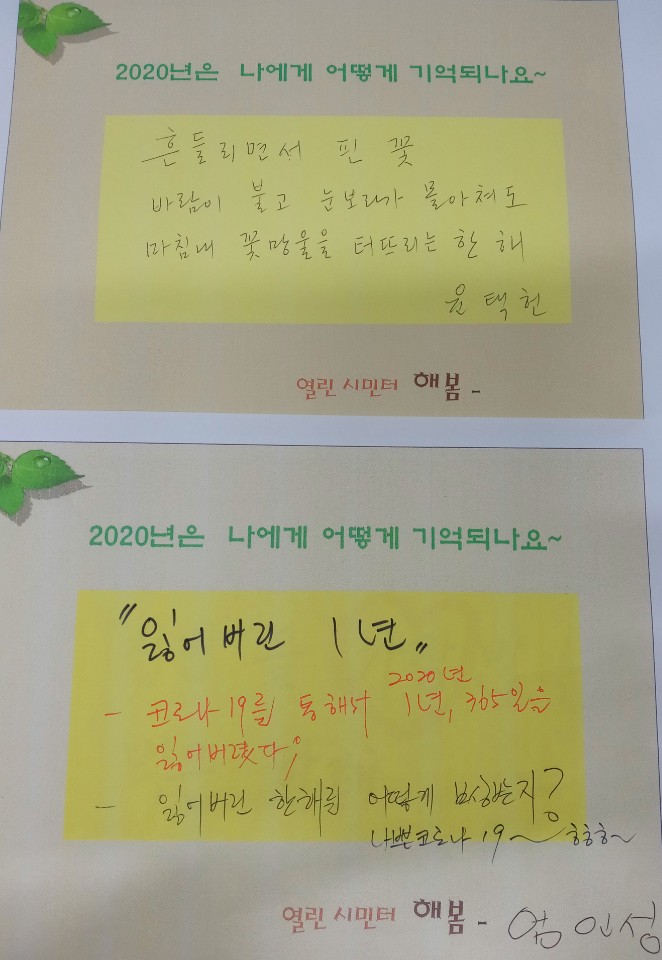 2020년은 나에게 어떻게 기억되나요~
흔들리면서 핀 꽃
바람이 불고 눈보라가 몰아쳐도
마침내 꽃망울을 터뜨리는 한 해
윤택헌
열린 시민터 해봄 -
2020년은 나에게 어떻게 기억되나요~
"잃어버린 1년"
2020년
- 코로나19를 통해서 1년, 365일을
잃어버렸다;
- 잃어버린 한해를 어떻게 보상받는지?
나쁜코로나 19~ 흐흐흐~
열린 시민터 해봄 - 엄인성